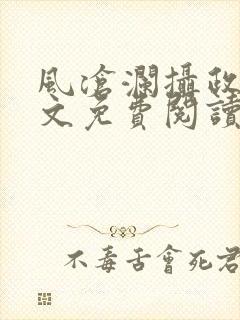 風滄瀾攝政
文免費閱讀
不毒舌會死君